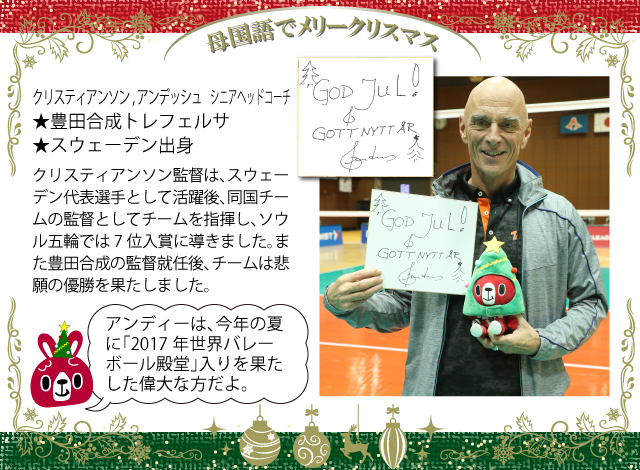 母国語でメリークリスマス
クリスティアンソン,アンデッシュ シニアヘッドコーチ
★豊田合成トレフェルサ
★スウェーデン出身
クリスティアンソン監督は、スウェー
デン代表選手として活躍後、同国チー
ムの監督としてチームを指揮し、ソウ
ル五輪では7位入賞に導きました。ま
た豊田合成の監督就任後、チームは悲
願の優勝を果たしました。
アンディーは、今年の夏
に「2017年世界バレー
ボール殿堂」入りを果た
した偉大な方だよ。
GOD JUL!
&
GOTT NYTT ÅR
GOD JUL!
&
GOTT NYTT ÅR